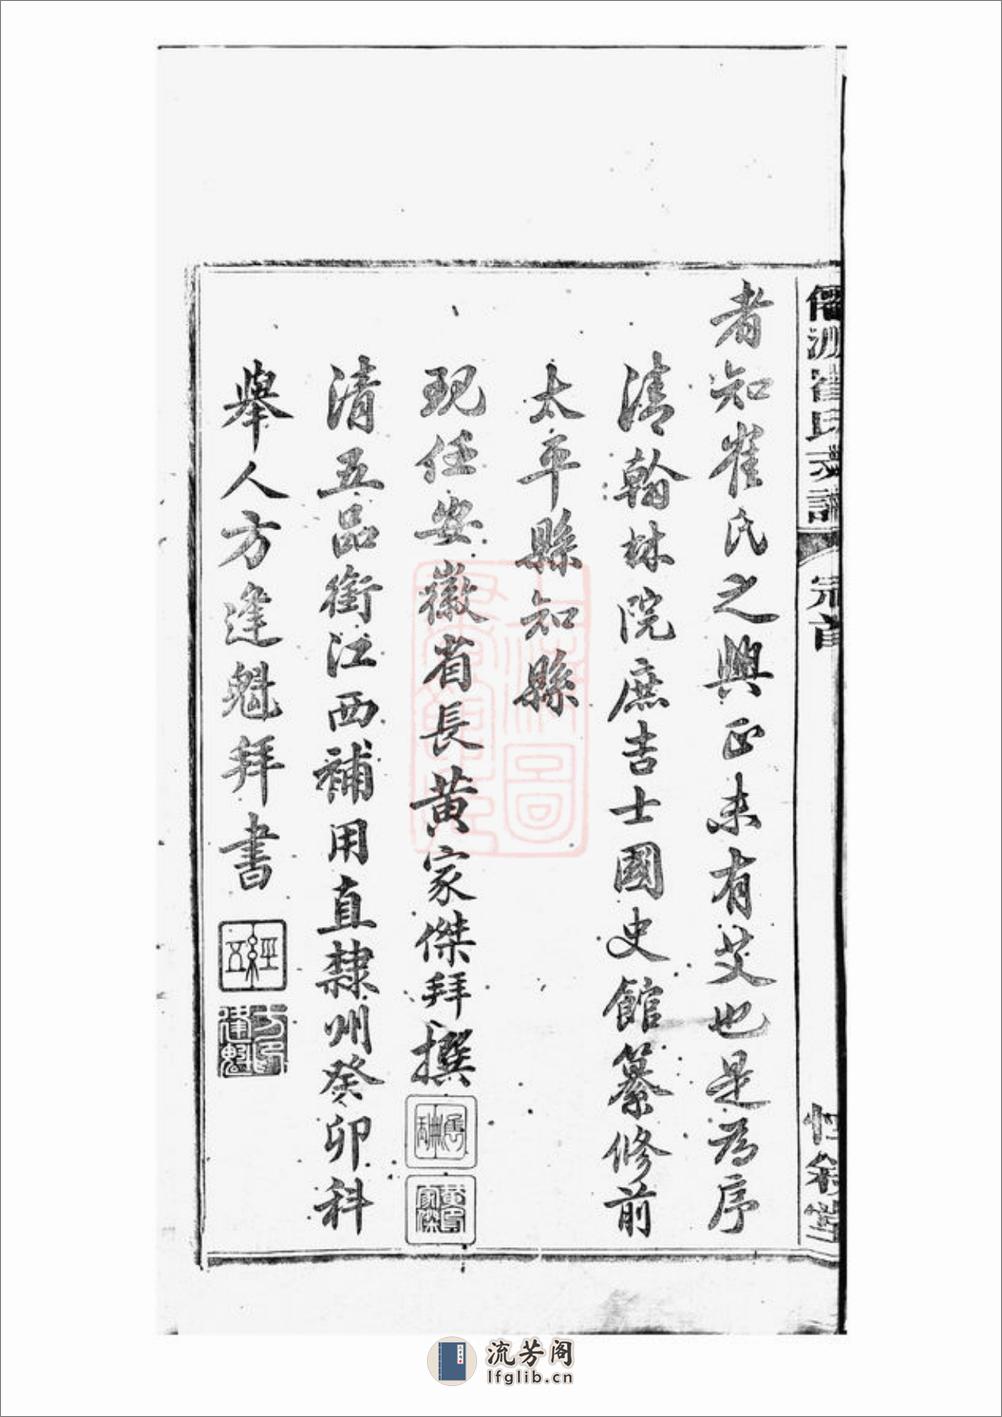 者知崔氏之興正未有艾也是為序
清翰林院庶吉士國史館纂修前
太平縣知縣
現任安徽省長黃家傑拜撰
清五品銜江西補用直隸州癸卯科
舉人方逢魁拜書
黃家傑
方逢魁
崔氏支譜
卷首
惇敘堂
流芳阁
lfglib.cn